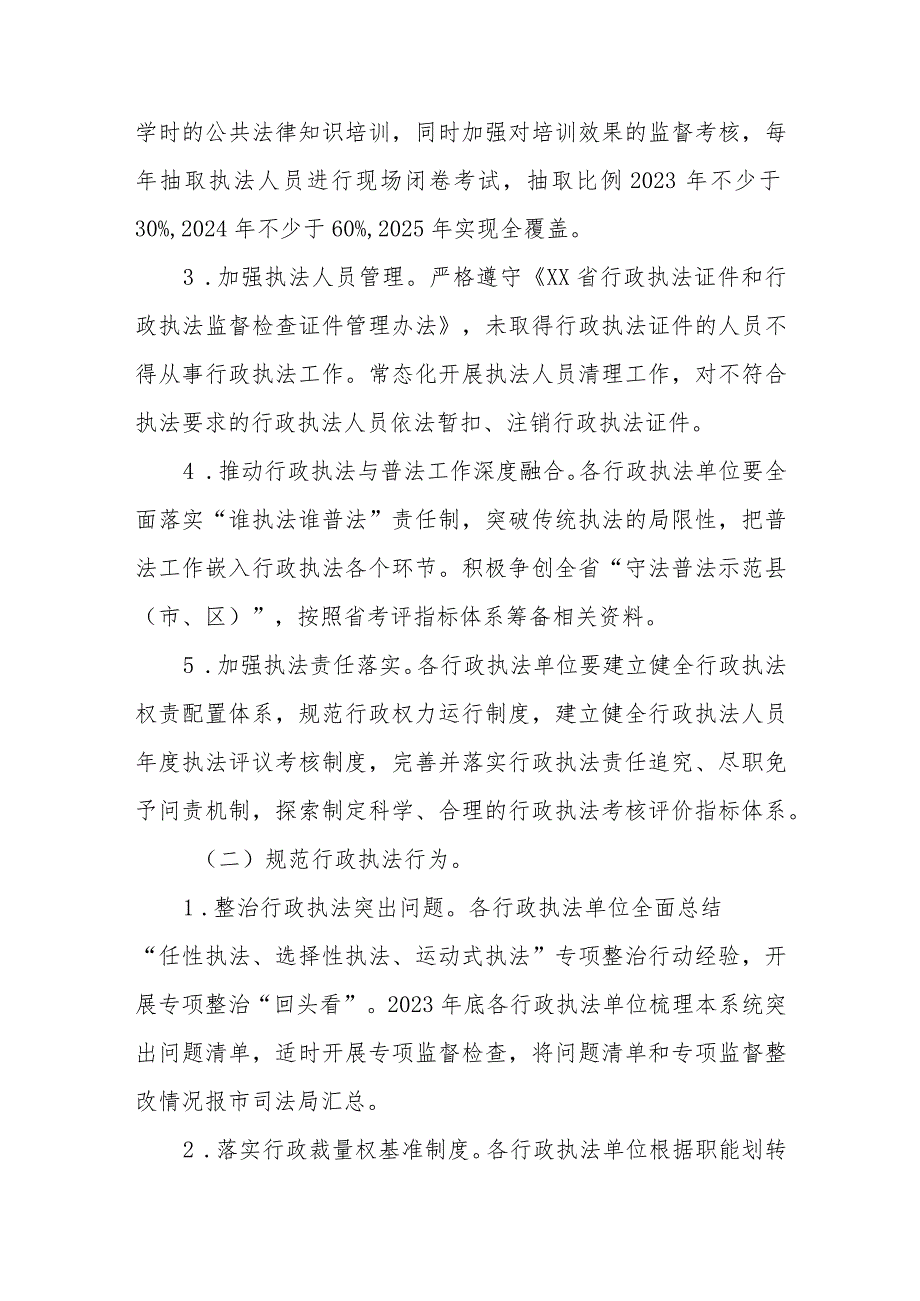 学时的公共法律知识培训，同时加强对培训效果的监督考核，每
年抽取执法人员进行现场闭卷考试，抽取比例2023 年不少于
30%,2024 年不少于60%,2025 年实现全覆盖。
3 .加强执法人员管理。严格遵守《XX 省行政执法证件和行
政执法监督检查证件管理办法》，未取得行政执法证件的人员不
得从事行政执法工作。常态化开展执法人员清理工作，对不符合
执法要求的行政执法人员依法暂扣、注销行政执法证件。
4 .推动行政执法与普法工作深度融合。各行政执法单位要全
面落实“谁执法谁普法”责任制，突破传统执法的局限性，把普
法工作嵌入行政执法各个环节。积极争创全省“守法普法示范县
（市、区）”，按照省考评指标体系筹备相关资料。
5 .加强执法责任落实。各行政执法单位要建立健全行政执法
权责配置体系，规范行政权力运行制度，建立健全行政执法人员
年度执法评议考核制度，完善并落实行政执法责任追究、尽职免
予问责机制，探索制定科学、合理的行政执法考核评价指标体系。
（二）规范行政执法行为。
1 .整治行政执法突出问题。各行政执法单位全面总结
“任性执法、选择性执法、运动式执法”专项整治行动经验，开
展专项整治“回头看”。2023 年底各行政执法单位梳理本系统突
出问题清单，适时开展专项监督检查，将问题清单和专项监督整
改情况报市司法局汇总。
2 .落实行政裁量权基准制度。各行政执法单位根据职能划转